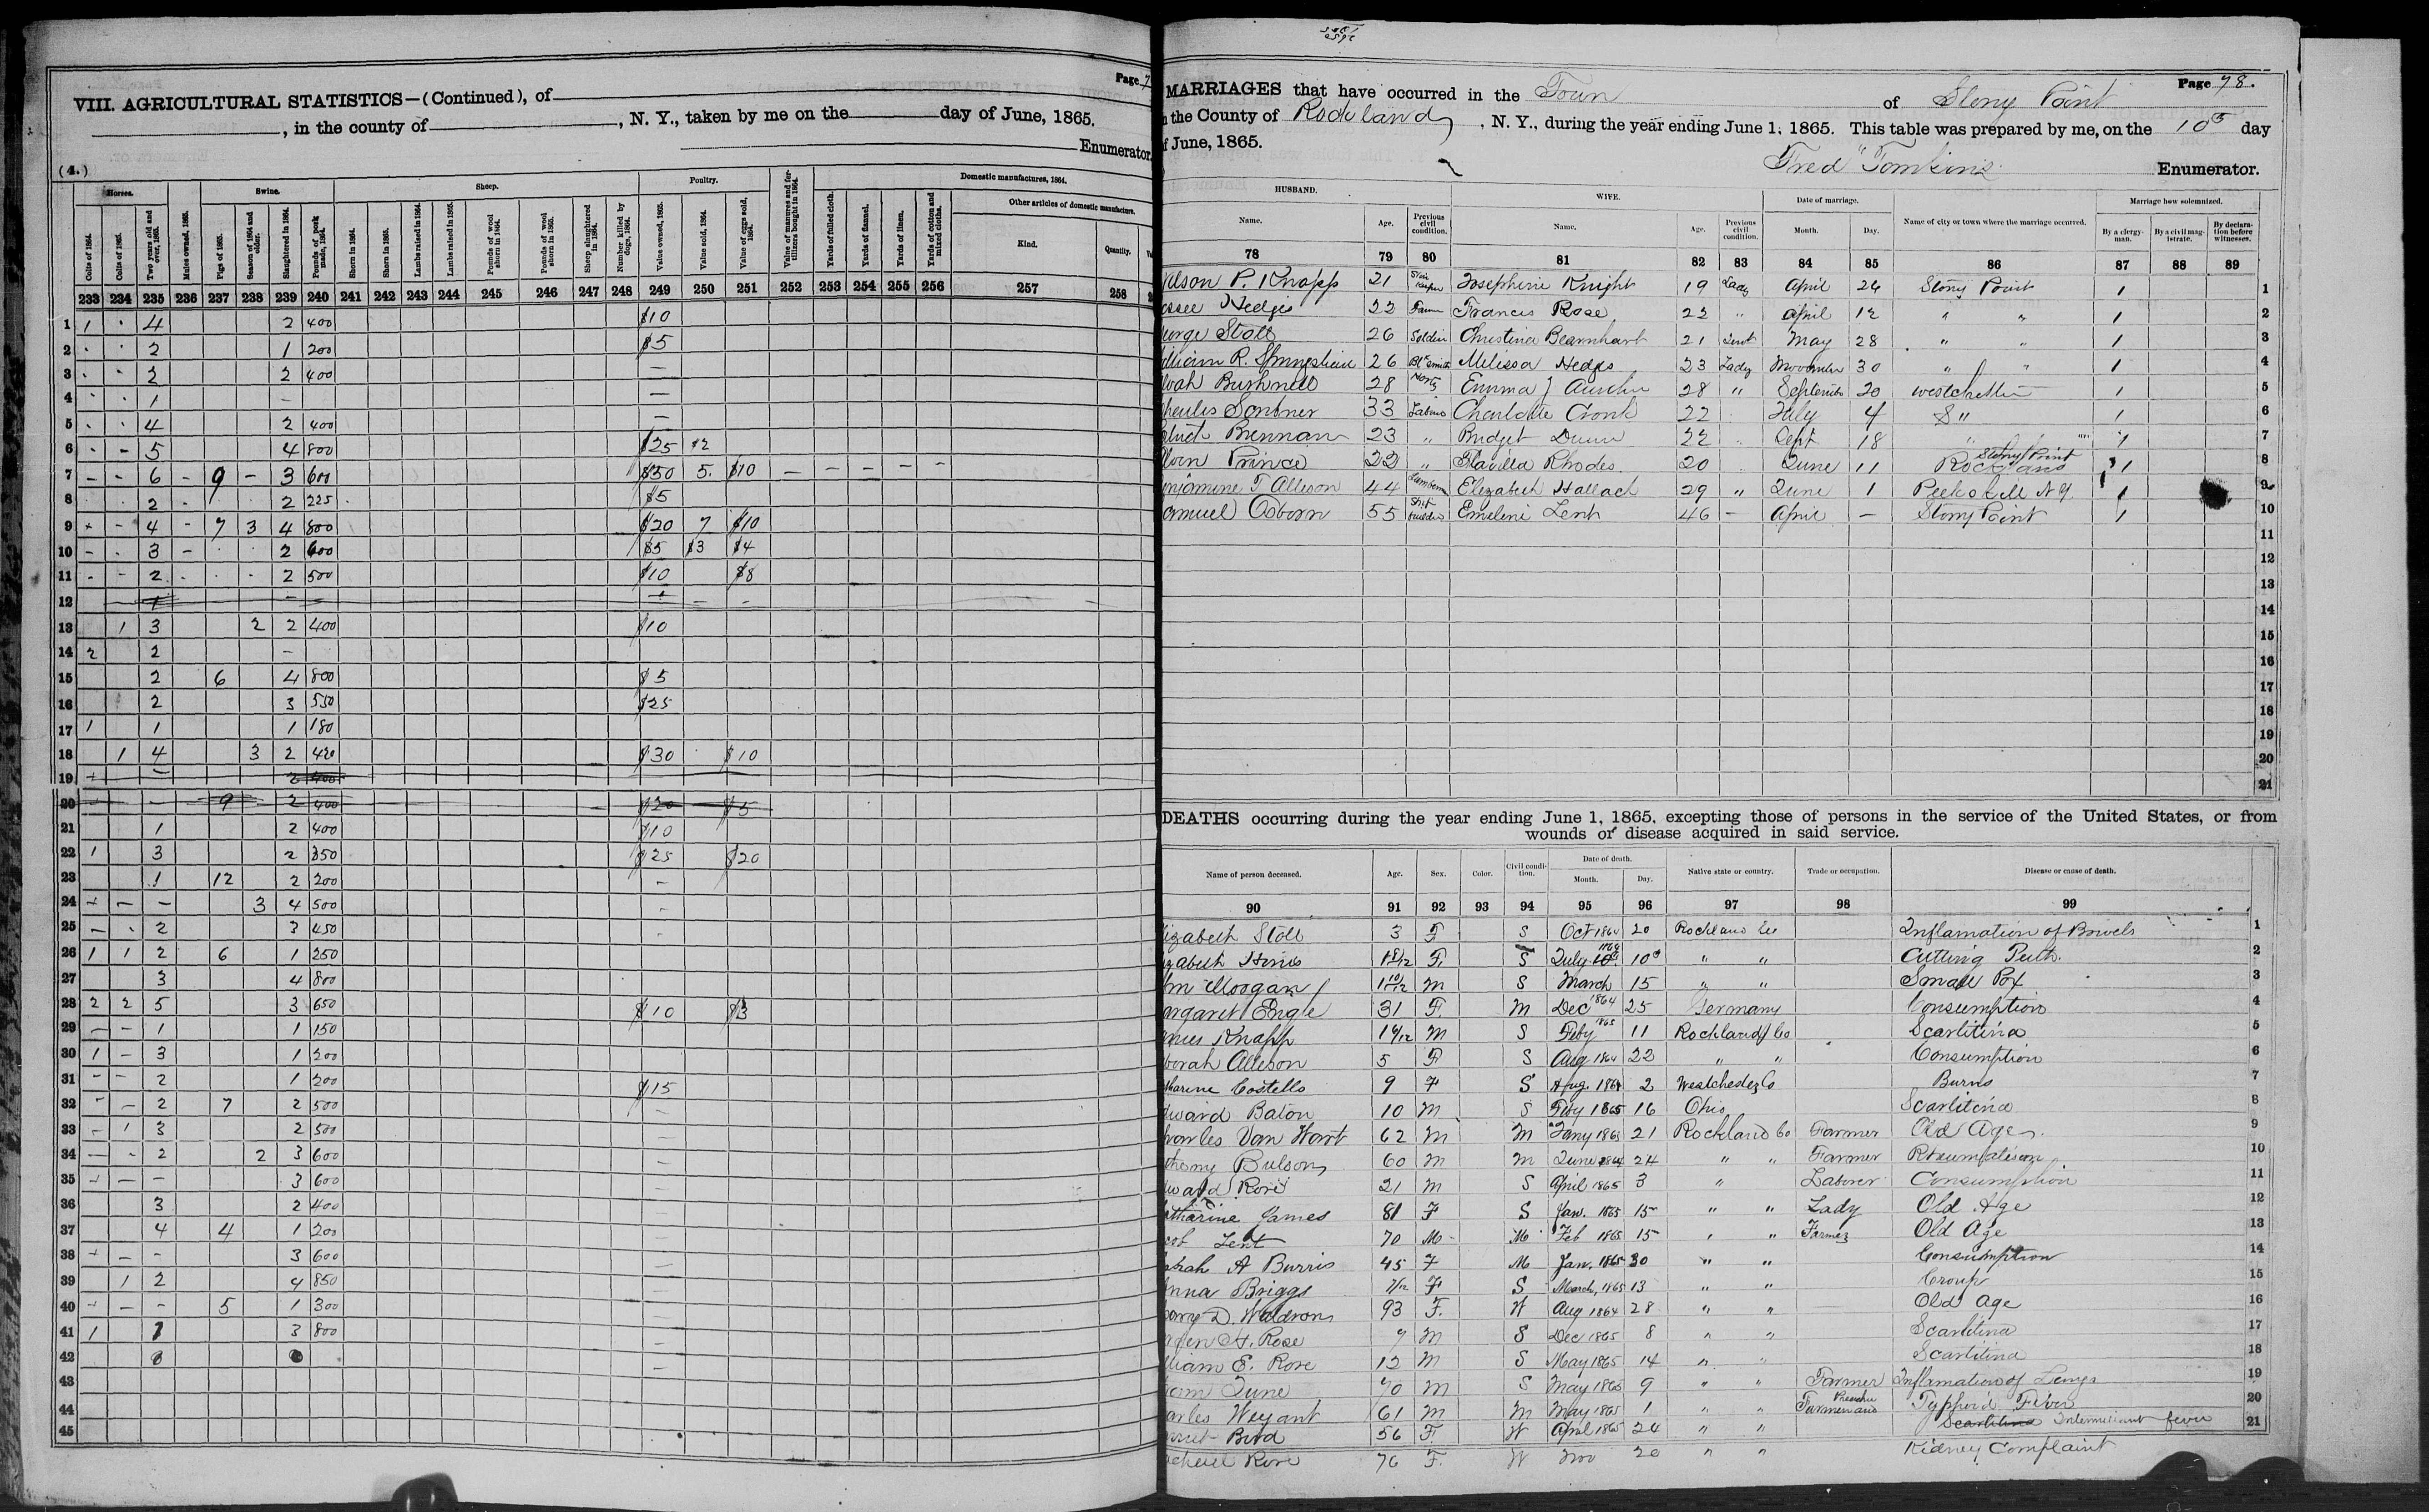 Page 7
VIII. AGRICULTURAL STATISTICS—(Continued), of
, in the county of , N. Y., taken by me on the day of June, 1865.
Enumerator.
(4.)
Horses. Swine. Sheep. Poultry. Value of manures and fertilizers bought in 1864. Domestic manufactures, 1864.
Colts of 1864. Colts of 1865. Two years old and over, 1865. Mules owned, 1865. Pigs of 1865. Season of 1864 and older. Slaughtered in 1864. Pounds of pork made, 1864. Shorn in 1864. Shorn in 1865. Lambs raised in 1864. Lambs raised in 1865. Pounds of wool shorn in 1864. Pounds of wool shorn in 1865. Sheep slaughtered in 1864. Number killed by dogs, 1864. Value owned, 1865. Value sold, 1864. Value of eggs sold, 1864. Yards of fulled cloth. Yards of flannel. Yards of linen. Yards of cotton and mixed cloths. Other articles of domestic manufacture. Kind. Quantity.
233 234 235 236 237 238 239 240 241 242 243 244 245 246 247 248 249 250 251 252 253 254 255 256 257 258
1 1 4 2 400 $10
2 2 1 200 $5
3 2 2 400 —
4 1 – —
5 4 2 400 —
6 - 5 4 800 $25 $2
7 - - 6 - 9 - 3 600 $30 5. $10 — — — — —
8 2 - 2 225 $5
9 + - 4 - 7 3 4 800 $20 7 $10
10 - 3 - 2 600 $5 $3 $4
11 - - 2 2 500 $10 $8
12 1
13 1 3 2 2 400 $10
14 2 2 –
15 2 6 4 800 $5
16 2 3 550 $25
17 1 1 1 180
18 1 4 3 2 420 $30 $10
19 + – 2 400
20 – 9 2 400 $20 $5
21 1 2 400 $10
22 1 3 2 350 $25 $20
23 1 12 2 200 –
24 + – – 3 4 500
25 – 2 3 450
26 1 1 2 6 1 250
27 3 4 800
28 2 2 5 3 650 $10 $3
29 – – 1 1 150
30 1 – 3 1 200
31 – – 2 1 200 $15
32 – – 2 7 2 500
33 – 1 3 2 500
34 – 2 2 3 600
35 + – – 3 600
36 3 2 400
37 4 4 1 200
38 + – – 3 600
39 1 2 4 850
40 + – – 5 1 300
41 1 1 3 800
42
43
44
45
Page 78.
MARRIAGES that have occurred in the Town of Stony Point
the County of Rockland, N. Y., during the year ending June 1, 1865. This table was prepared by me, on the 10th day
June, 1865.
Fred Tomkins Enumerator.
HUSBAND. WIFE. Date of marriage. Name of city or town where the marriage occurred. Marriage how solemnized.
Name. Age. Previous civil condition. Name. Age. Previous civil condition. Month. Day. By a clergyman. By a civil magistrate. By declaration before witnesses.
78 79 80 81 82 83 84 85 86 87 88 89
P. Knapp 21 Josephine Knight 19 Lady April 26 Stony Point 1 1
Hedges 22 Francis Rose 22 " April 12 " " 1 2
George Stoll 26 Soldier Christina Bearnhart 21 May 28 " " 1 3
William R. Springstien 26 Bl smith Melissa Hedges 23 Lady November 30 " " 1 4
Bushnell 28 Emma J 28 " September 20 Westchester 1 5
33 Charlotte Cronk 22 July 4 S " 1 6
Brennan 23 " Bridget Dunn 22 Sept 18 " " 1 7
Prince 22 " Flavilla Rhodes 20 June 11 Rockland Stony Point 1 8
T Allison 44 Elizabeth Hallach 29 " June 1 Peekskill N Y. 1 9
Samuel Osborn 55 Ship builder Emeline Lent 46 – April – Stony Point 1 10
11
12
13
14
15
16
17
18
19
20
21
DEATHS occurring during the year ending June 1, 1865, excepting those of persons in the service of the United States, or from
wounds or disease acquired in said service.
Name of person deceased. Age. Sex. Color. Civil condition. Date of death. Month. Day. Native state or country. Trade or occupation. Disease or cause of death.
90 91 92 93 94 95 96 97 98 99
izabeth Stoll 3 F S Oct 1864 20 Rockland Co Inflamation of Bowels 1
zabeth 1 8/12 F. S July 1864 10 " " Cutting Teeth. 2
1 10/12 M S March 15 " " Small Pox 3
argaret Engle 31 F. M Dec 1864 25 Germany Consumption 4
Knapp 1 6/12 M S Feby 1865 11 Rockland Co Scarlitina 5
borah Allison 5 F S Aug 1864 22 " " Consumption 6
tharine Costello 9 F S Aug. 1864 2 Westchester Co Burns 7
dward Baton 10 M S Feby 1865 16 Ohio Scarlitina 8
harles Van Wart 62 M M Jany 1865 21 Rockland Co Farmer Old Age. 9
thony Bulson 60 M M June 1864 24 " " Farmer Rheumatism 10
dward Rose 21 M S April 1865 3 " Laborer Consumption 11
atharine James 81 F S Jan. 1865 15 " " Lady Old Age 12
cob Lent 70 M M Feb 1865 15 " " Farmer Old Age 13
arah A Burris 45 F M Jan. 1865 30 " " Consumption 14
nna Briggs 7/12 F S March, 1865 13 " " Croup 15
D. Waldron 93 F. W Aug 1864 28 " " Old Age 16
H. Rose 7 M S Dec 1865 8 " " Scarlitina 17
lliam E. Rose 12 M S May 1865 14 " " Scarlitina 18
June 70 M S May 1865 9 " " Farmer Inflamation of Lungs 19
arles Weyant 61 M M May 1865 1 " " Farmer and Preacher Typhoid Fever 20
Bird 56 F W April 1865 24 " " Scarlitina Intermittent fever 21
Rose 76 F. W Nov 20 " " Kidney Complaint